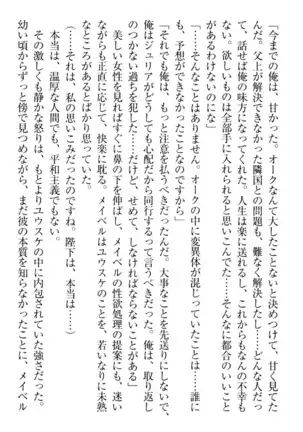 「今までの俺は、甘かった。オークなんて大したことないと決めつけて、甘く見てた
んだ。父上が解決できなかった隣国との問題も、難なく解決したし……どんな人だっ
て、話せば俺の味方になってくれた。人生は楽に送れるし、これからもなんの不幸も
なく、欲しいものは全部手に入れられると思いこんでた……そんなに都合のいいこと
あるわけないのにな」
「……そんなことはありません。オークの中に変異体が混じっていたことは……誰に
も、予想ができなかったことなのですから」
「それでも俺は、もっと注意を払うべきだった。大事なことを先送りにしないで、
俺はジュリアがどうしても心配だから同行するって言うべきだった。俺は、取り返し
のつかない過ちを犯した……だけど、せめて、しなければならないことがある」
美しい女性を見ればすぐに鼻の下を伸ばし、メイベルの性欲処理の提案にも、迷い
ながらも正直に応じて、快楽に耽る。メイベルはユウスケのことを、若いなりに未熟
なところがあるとばかり思っていた。
（……それは、私の思いこみだったのですね。陛下は、本当は……）
本当は、温厚な人間でも、平和主義でもない。
その激しくも静かな怒りは、もとよりユウスケの中に内包されていた強さだった。
幼い頃からずっと傍で見つめながら、まだ彼の本質を知らなかったことに、メイベル